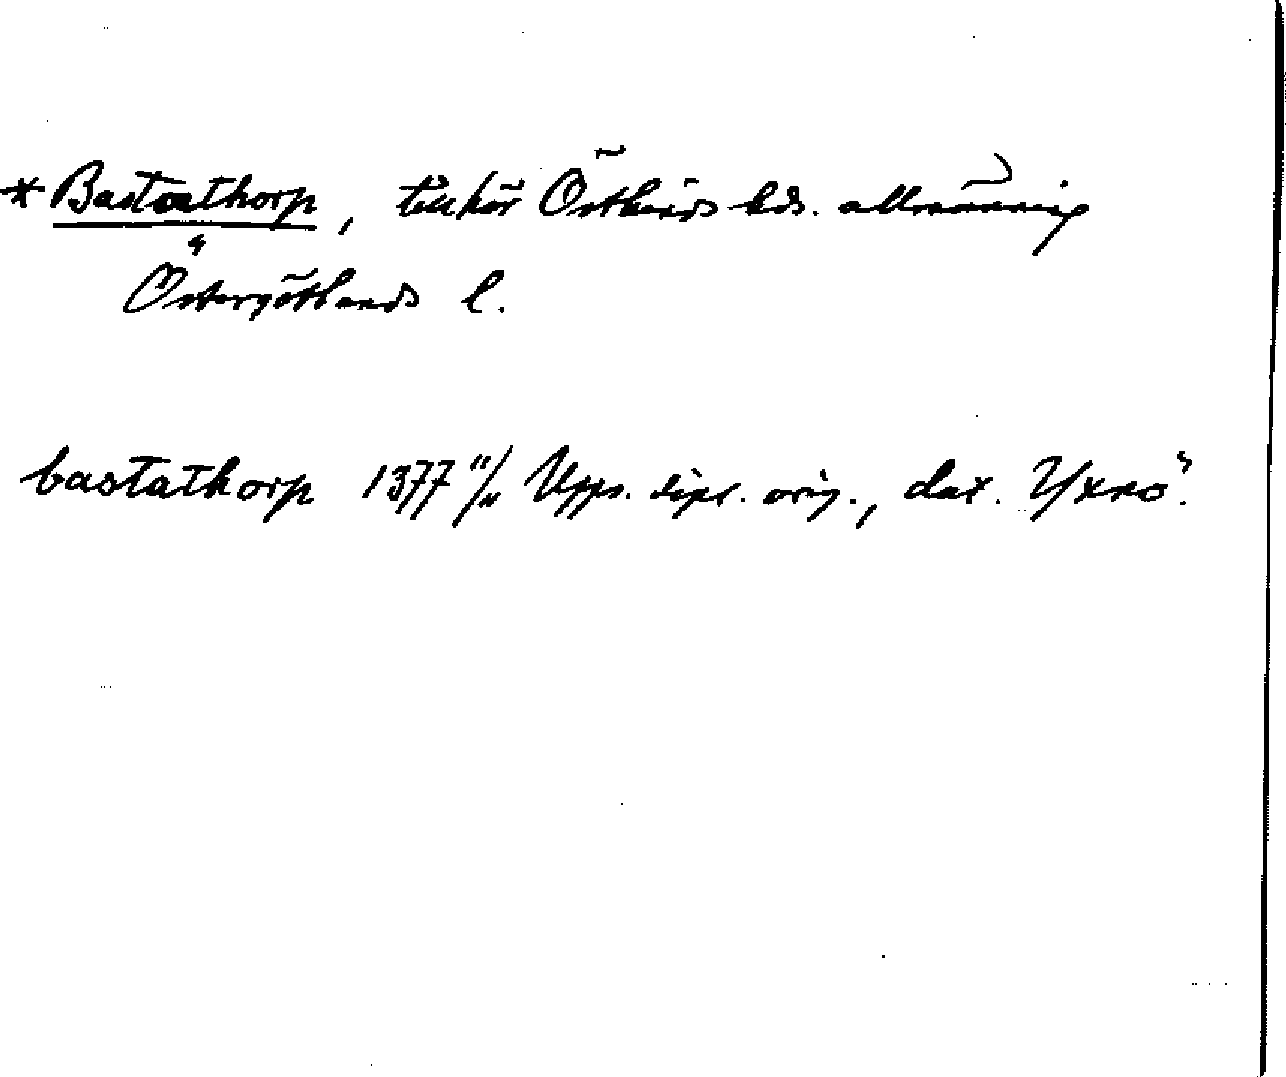 * Bastathorp, tillhör Östkinds hds. allmänning
Östergötlands l.
bastathorp 1377 11/11 Upps. dipl. orig., dat. Yxnö?